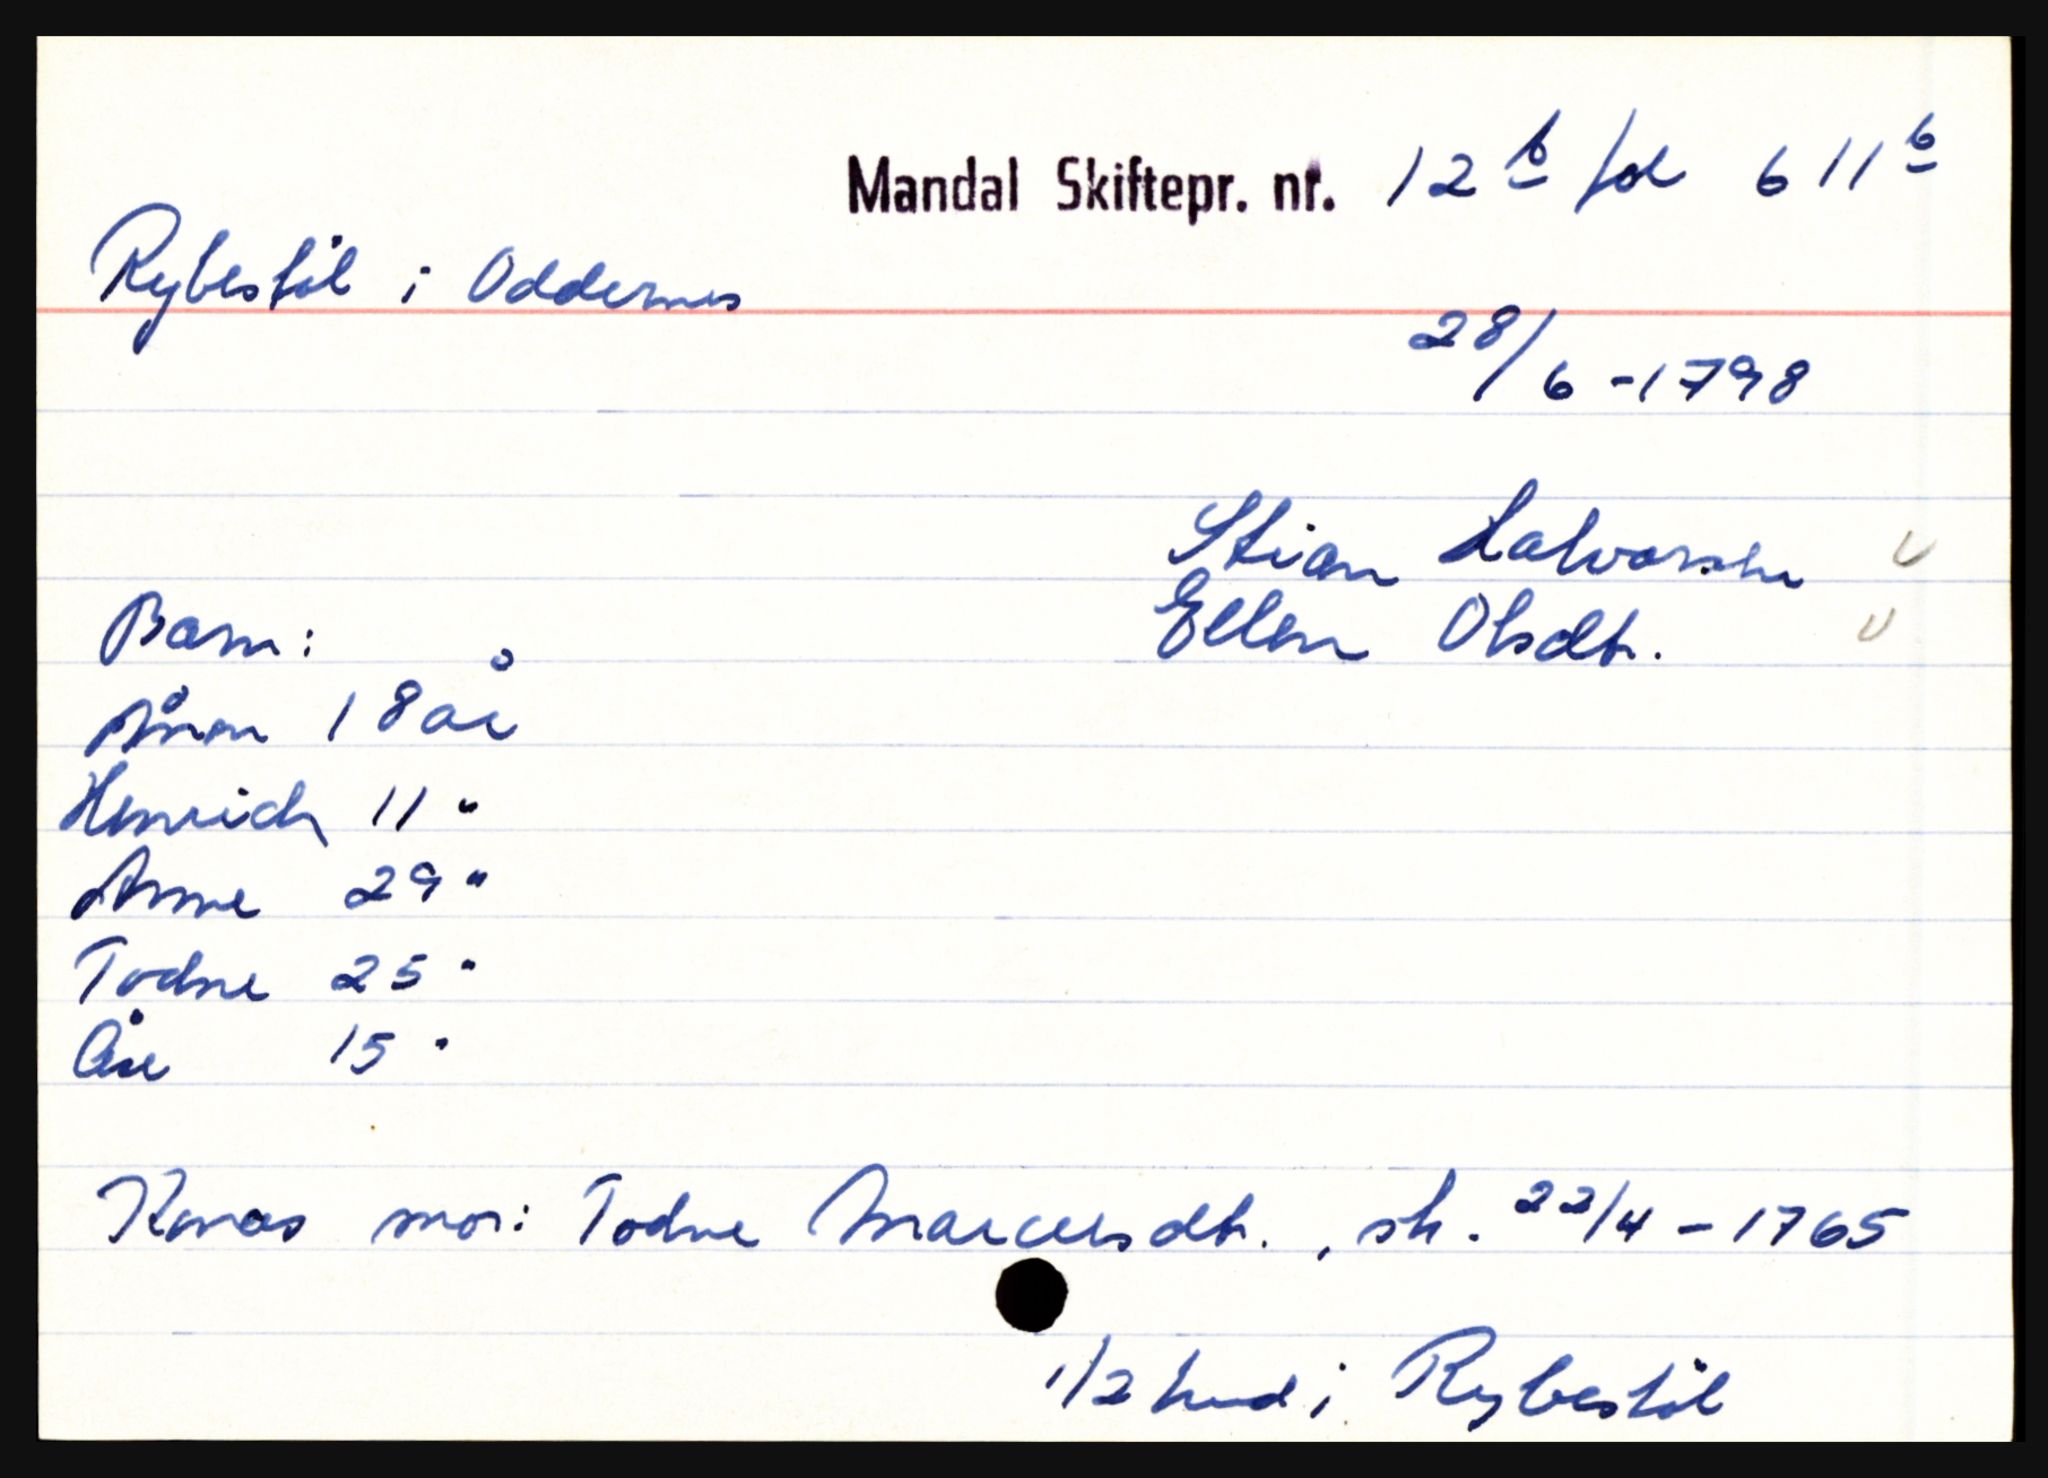 Mandal Skiftepr. nr. 12 b fol 611 b
Rybestøl i Oddernes
28/6 - 1798
Stian Halvorsen
Ellen Olsdtr.
Barn:
Ånon 18 år
Henrich 11 "
Anne 29 "
Todne 25 "
Åse 15 "
Konas mor: Todne Marcusdtr., sk. 22/4 - 1765
1/2 hud i Rybestøl